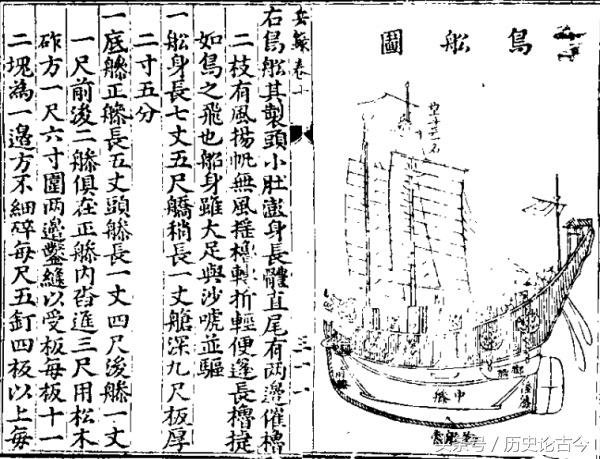 鳥舩圖
中
頭
兵錄卷十
三一一
右鳥舩其製頭小肚澎身長體直尾有兩邊催櫓
二枝有風揚帆無風搖櫓轉折輕便篷長櫓捷
如鳥之飛也船身雖大足與沙唬並驅
一舩身長七丈五尺稍長一丈艙深九尺板厚
二寸五分
一底正長五丈頭長一丈四尺後一丈
一尺前後二俱在正內沓進三尺用松木
砟方一尺六寸圍兩邊鑿縫以受板每板十一
二塊為一邊方不細碎每尺五釘四板以上每
头条号 / 历史论古今